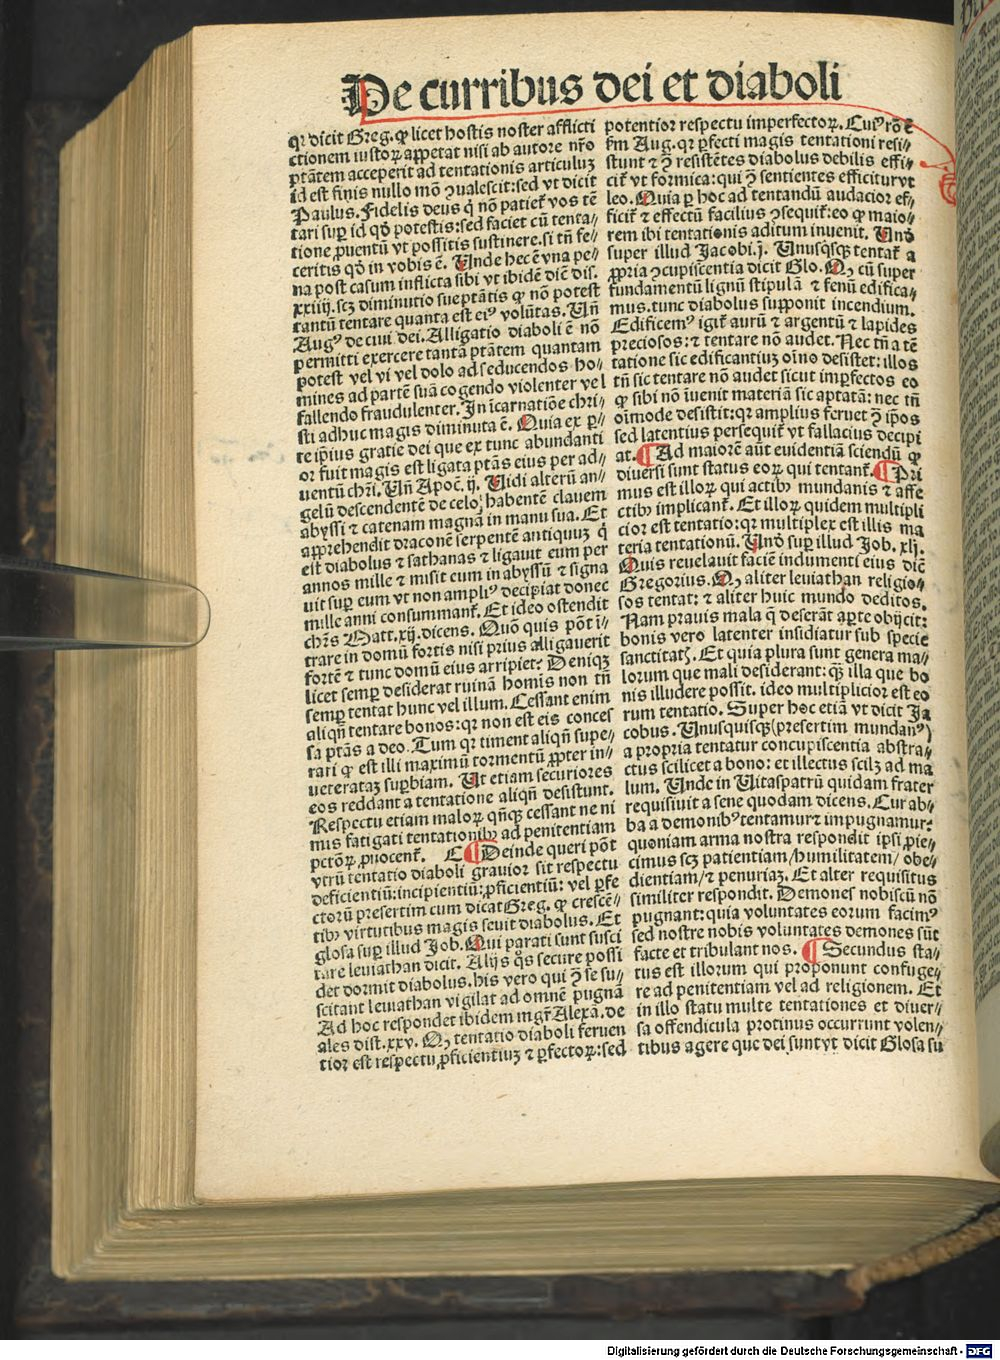 De curribus dei et diaboli
qꝛ dicit Greg. ꝙ licet hostis noster afflicti
ctionem iustoꝝ appetat nisi ab autore nr̄o
ptātem acceperit ad tentationis articuluꝫ
id est finis nullo mō ꝯualescit: sed vt dicit
Paulus. Fidelis deus q̇ nō patiet̄ vos tē
tari suꝑ id qḋ potestis: sed faciet cū tenta⸗
tione ꝓuentū vt possitis sustinere. si tn̄ fe⸗
ceritis qḋ in vobis ē. Unde hec ē vna pe⸗
na post casum inflicta sibi vt ibidē diē dis.
xxiiij. scꝫ diminutio sue ptātis ꝙ nō potest
tantū tentare quanta est eiꝰ volūtas. Un̄
Augꝰ de ciui dei. Alligatio diaboli ē nō
permitti exercere tantā ptātem quantam
potest vel vi vel dolo ad seducendos ho⸗
mines ad partē suā cogendo violenter vel
fallendo fraudulenter. In īcarnatiōe chri⸗
sti adhuc magis diminuta ē. Quia ex ꝑ⸗
te ipsius gratie dei que ex tunc abundanti
or fuit magis est ligata ptās eius per ad⸗
uentū chr̄i. Un̄ Apoc̄. ij. Uidi alterū an⸗
gelū descendentē de celo, habentē clauem
abyssi ⁊ catenam magnā in manu sua. Et
apprehendit draconē serpentē antiquuꝫ q̇
est diabolus ⁊ sathanas ⁊ ligauit eum per
annos mille ⁊ misit eum in abyssū ⁊ signa
uit suꝑ eum vt non ampliꝰ decipiat donec
mille anni consummant̄. Et ideo ostendit
chr̄s Matt. xij. dicens. Quō quis pōt ī⸗
trare in domū fortis nisi prius alligauerit
fortē ⁊ tunc domū eius arripiet? Deniqꝫ
licet semꝑ desiderat ruinā homīs non tn̄
semꝑ tentat hunc vel illum. Cessant enim
aliqn̄ tentare bonos: qꝛ non est eis conces
sa ptās a deo. Tum qꝛ timent aliqn̄ supe⸗
rari ꝙ est illi maximū tormentū ꝓpter in⸗
ueterataꝫ suꝑbiam. Ut etiam securiores
eos reddant a tentatione aliqn̄ desistunt.
Respectu etiam maloꝝ qn̄qꝫ cessant ne ni
mis fatigati tentationibꝰ ad penitentiam
pctōꝝ ꝓuocent̄. C ¶ Deinde queri pōt
vtrū tentatio diaboli grauior sit respectu
deficientiū: incipientiū: ꝓficientiū: vel ꝑfe
ctorū presertim cum dicat Greg. ꝙ crescē⸗
tibꝰ virtutibus magis seuit diabolus. Et
glosa suꝑ illud Job. Qui parati sunt susci
tare leuiathan dicit. Alijs q̊s secure possi
det dormit diabolus. his vero qui ꝯ̄ se su⸗
scitant leuiathan vigilat ad omnē pugnā
Ad hoc respondet ibidem mgr̄ Alexā. de
ales dist. xxv. Qꝫ tentatio diaboli feruen
tior est respectu ꝓficientiuꝫ ⁊ ꝑfectoꝝ: sed
potentior respectu imperfectoꝝ. Cuiꝰ rō ē
fm̄ Aug. qꝛ ꝑfecti magis tentationi resi⸗
stunt ⁊ ꝯ̄ resistētes diabolus debilis effi⸗
cit̄ vt formica: qui ꝯ̄ sentientes efficitur vt
leo. Quia ꝑ hoc ad tentandū audacior ef⸗
ficit̄ ⁊ effectū facilius ꝯsequit̄: eo ꝙ maio⸗
rem ibi tentationis aditum inuenit. Unḋ
super illud Jacobi. j. Unusqsqꝫ tentat̄ a
ꝓpria ꝯcupiscentia dicit Glo. Qꝫ cū super
fundamentū lignū stipulā ⁊ fenū edifica⸗
mus. tunc diabolus supponit incendium.
Edificemꝰ igit̄ aurū ⁊ argentū ⁊ lapides
preciosos: ⁊ tentare nō audet. Nec tn̄ a tē
tatione sic edificantiuꝫ oīno desistet: illos
tn̄ sic tentare nō audet sicut imꝑfectos eo
ꝙ sibi nō īuenit materiā sic aptatā: nec tn̄
oīmode desistit: qꝛ amplius feruet ꝯ̄ ip̄os
sed latentius persequit̄ vt fallacius decipi
at. ¶ Ad maiorē aūt euidentiā sciendū ꝙ
diuersi sunt status eoꝝ qui tentant̄. ¶ Pri
mus est illoꝝ qui actibꝰ mundanis ⁊ affe
ctibꝰ implicant̄. Et illoꝝ quidem multipli
cior est tentatio: qꝛ multiplex est illis ma
teria tentationū. Unḋ suꝑ illud Job. xlj.
Quis reuelauit faciē indumenti eius diē
Gregorius. Qꝫ aliter leuiathan religio⸗
sos tentat: ⁊ aliter huic mundo deditos.
Nam prauis mala q̄ deserāt aꝑte obijcit:
bonis vero latenter insidiatur sub specie
sanctitatꝭ. Et quia plura sunt genera ma⸗
lorum que mali desiderant: qꝫ illa que bo
nis illudere possit. ideo multiplicior est eo
rum tentatio. Super hoc etiā vt dicit Ja
cobus. Unusquisqꝫ (presertim mundanꝰ)
a propria tentatur concupiscentia abstra⸗
ctus scilicet a bono: et illectus scilꝫ ad ma
lum. Unde in Uitaspatrū quidam frater
requisiuit a sene quodam dicens. Cur ab⸗
ba a demonibꝰ tentamur ⁊ impugnamur:
quoniam arma nostra respondit ipsi ꝓie⸗
cimus scꝫ patientiam/ humilitatem/ obe⸗
dientiam/ ⁊ penuriaꝫ. Et alter requisitus
similiter respondit. Demones nobiscū nō
pugnant: quia voluntates eorum facimꝰ
sed nostre nobis voluntates demones sūt
facte et tribulant nos. ¶ Secundus sta⸗
tus est illorum qui proponunt confuge⸗
re ad penitentiam vel ad religionem. Et
in illo statu multe tentationes et diuer⸗
sa offendicula protinus occurrunt volen⸗
tibus agere que dei sunt vt dicit Glosa su
Digitalisierung gefördert durch die Deutsche Forschungsgemeinschaft - DFG